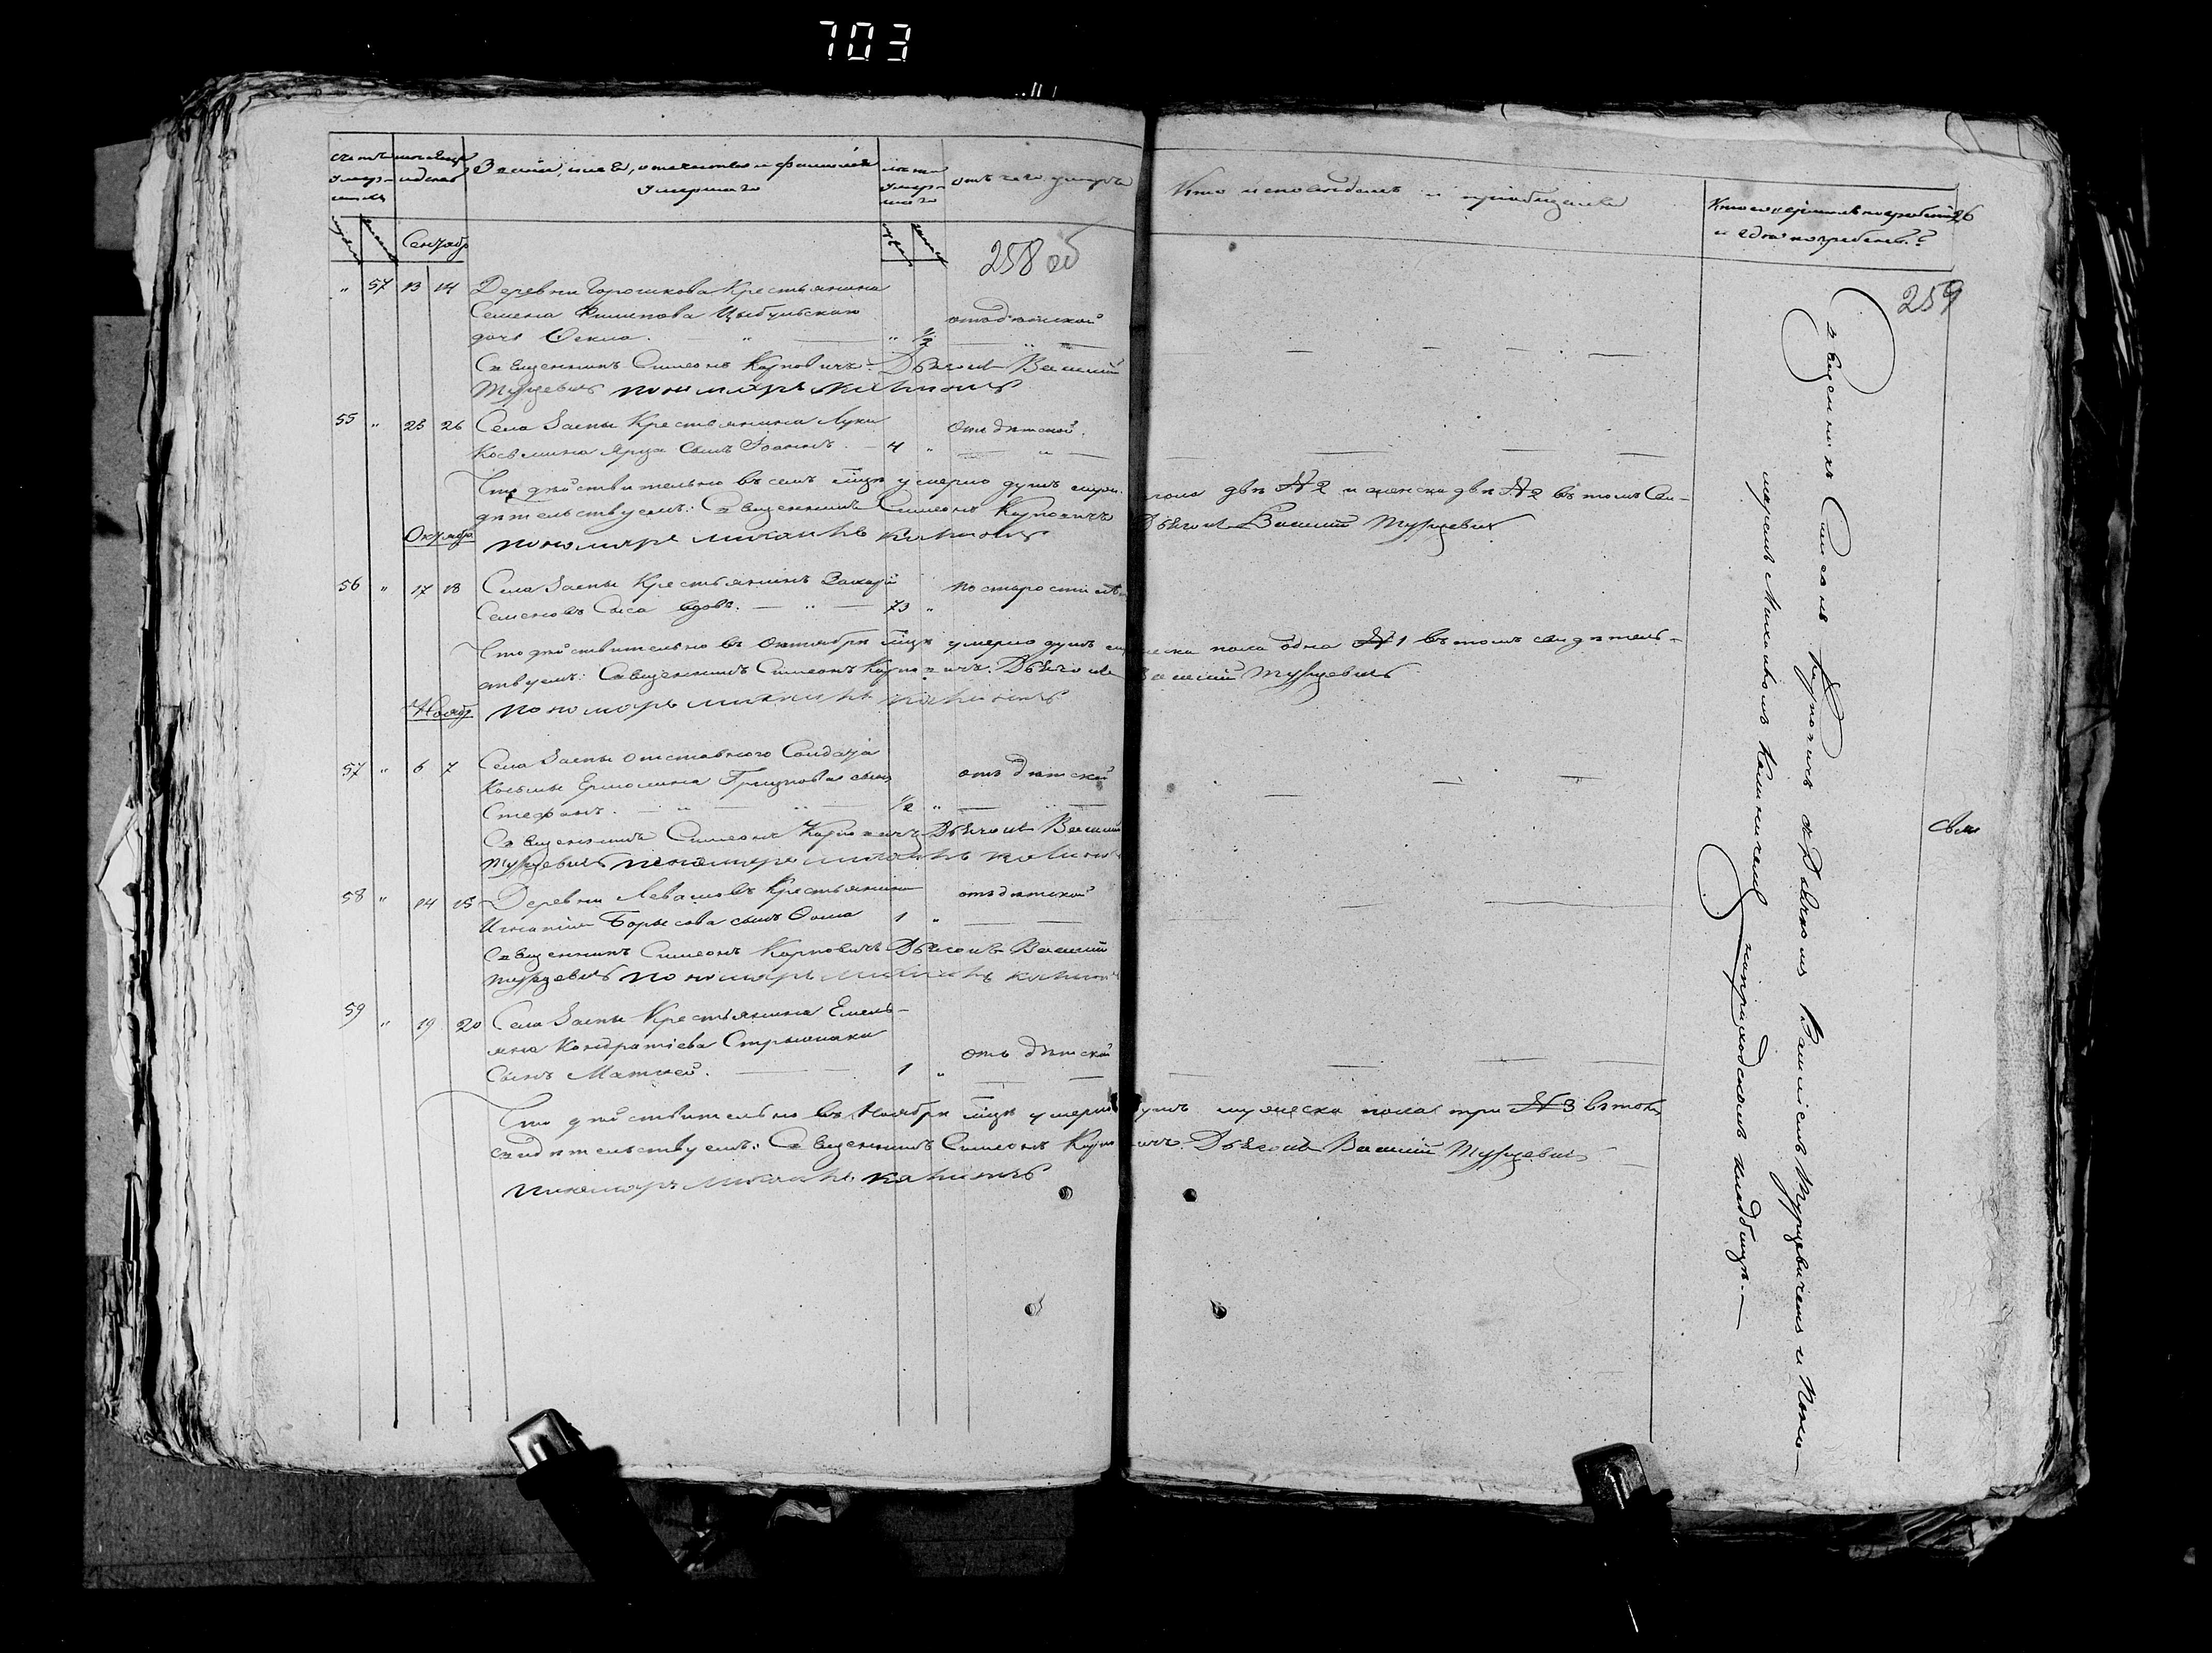 703
Счетъ умер-
шихъ
мѣсяцъ
и день
Званiе, имя, отечество и фамилiя
умершаго
лѣта
умер-
шаго
отъ чего умеръ
Кто исповѣдалъ и прiобщалъ
Кто совершалъ погребенiе
и гдѣ погребены?
26
Сентябр
258 об
259
" 57 13 14 Деревни Горошкова Крестьянина
Семена Филипова Цыбульскаго
дочь Ѳекла. " " 1/2 отъ дѣтской
Священникъ Симеонъ Карповичъ Дьячокъ Василий
Турцевичъ пономарь
55 " 25 26 Села Заспы Крестьянина Луки
Козьмина Ярца сынъ Iоаннъ. 4 " Отъ дѣтской.
Что дѣйствительно въ семъ мцѣ умерло душъ муж. пола двѣ № 2 и женска двѣ № 2 въ томъ сви-
дѣтельствуемъ: Священникъ Симеонъ Карповичъ Дьячокъ Василий Турцевичъ
Октября
пономарь Михаилъ
56 " 17 18 Села Заспы Крестьянинъ Захарiй
Семеновъ Сыса вдовъ. " 73 " по старости лѣт
Что дѣйствительно въ Октябрѣ мцѣ умерло душъ мужеска пола одна № 1 въ томъ свидѣтель-
ствуемъ: Священникъ Симеонъ Карповичъ. Дьячокъ Василий Турцевичъ
Ноябр
пономарь Михаилъ
57 " 6 7 Села Заспы отставного Солдата
Козьмы Ермолина сынъ
Стефанъ. " " 1/2 " отъ дѣтской
Священникъ Симеонъ Карповичъ Дьячокъ Василий
Турцевичъ пономарь Михаилъ
58 " 14 15 Деревни Левашовъ Крестьянина
Игнатiя Борысова сынъ Ѳома 1 " отъ дѣтской
Священникъ Симеонъ Карповичъ Дьячокъ Василий
Турцевичъ пономарь Михаилъ
59 " 19 20 Села Заспы Крестьянина Емель-
яна Кондратiева
сынъ Матѳей. 1 " отъ дѣтской
Что дѣйствительно въ Ноябрѣ мцѣ умерло душъ мужеска пола три № 3 въ томъ
свидѣтельствуемъ: Священникъ Симеонъ Карповичъ. Дьячокъ Василий Турцевичъ
пономарь Михаилъ
Священникъ Симеонъ Карповичъ съ Дьячкомъ Василiемъ Турцевичемъ и Поно-
маремъ Михаиломъ на приходскомъ кладбищѣ.